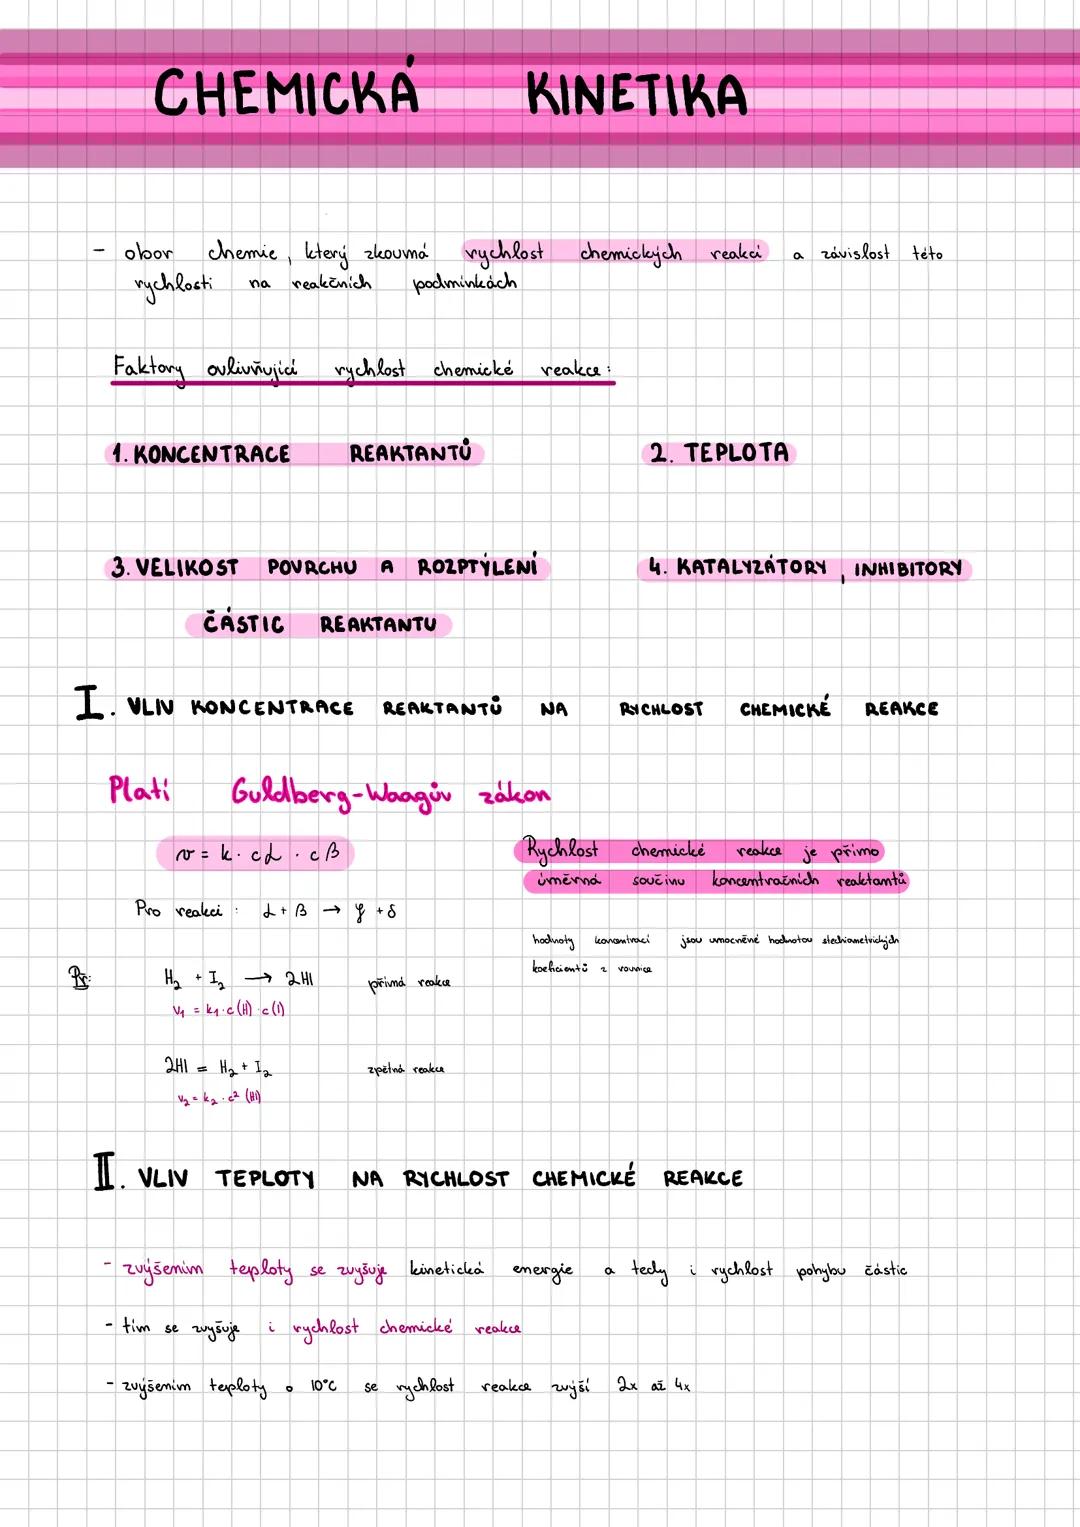 CHEMICKÁ KINETIKA
- obor chemie, který zkoumá rychlost chemických reakcí a závislost této
rychlosti na reakčních podmínkách
Faktory ovlivňující rychlost chemické reakce:
1. KONCENTRACE REAKTANTŮ
2. TEPLOTA
3. VELIKOST POVRCHU A ROZPTÝLENÍ
ČÁSTIC REAKTANTU
4. KATALYZÁTORY, INHIBITORY
I. VLIV KONCENTRACE REAKTANTŮ NA RYCHLOST CHEMICKÉ REAKCE
Platí Guldberg-Waagův zákon
v = k · cα · cβ
Rychlost chemické reakce je přímo
úměrná součinu koncentračních reaktantů
Pro reakci: α + β → γ + δ
hodnoty koncentrací jsou umocněné hodnotou stechiometrických
koeficientů z rovnice
Př: H₂ + I₂ → 2HI přímá reakce
v₁ = k₁·c(H)·c(I)
2HI = H₂ + I₂ zpětná reakce
v₂ = k₂ · c² (HI)
II. VLIV TEPLOTY NA RYCHLOST CHEMICKÉ REAKCE
- zvýšením teploty se zvyšuje kinetická energie a tedy i rychlost pohybu částic
- tím se zvyšuje i rychlost chemické reakce
- zvýšením teploty o 10°C se rychlost reakce zvýší 2x až 4x